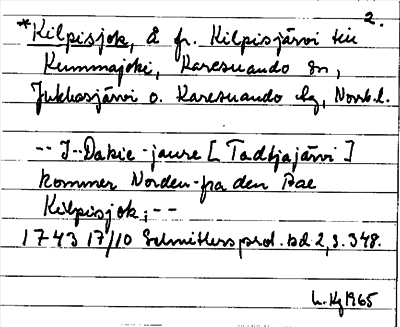 2.
*Kilpisjok, å fr. Kilpisjärvi till
Kummajoki, Karesuando sn,
Jukkasjärvi o. Karesuando lfg, Norrb.l.
-- I-Dakie-jaure [Tadtjajärvi]
kommer Norden-fra den Aae
Kilpisjok; --
1743 17/10 Schnitlers prot. bd 2, s. 348.
1965